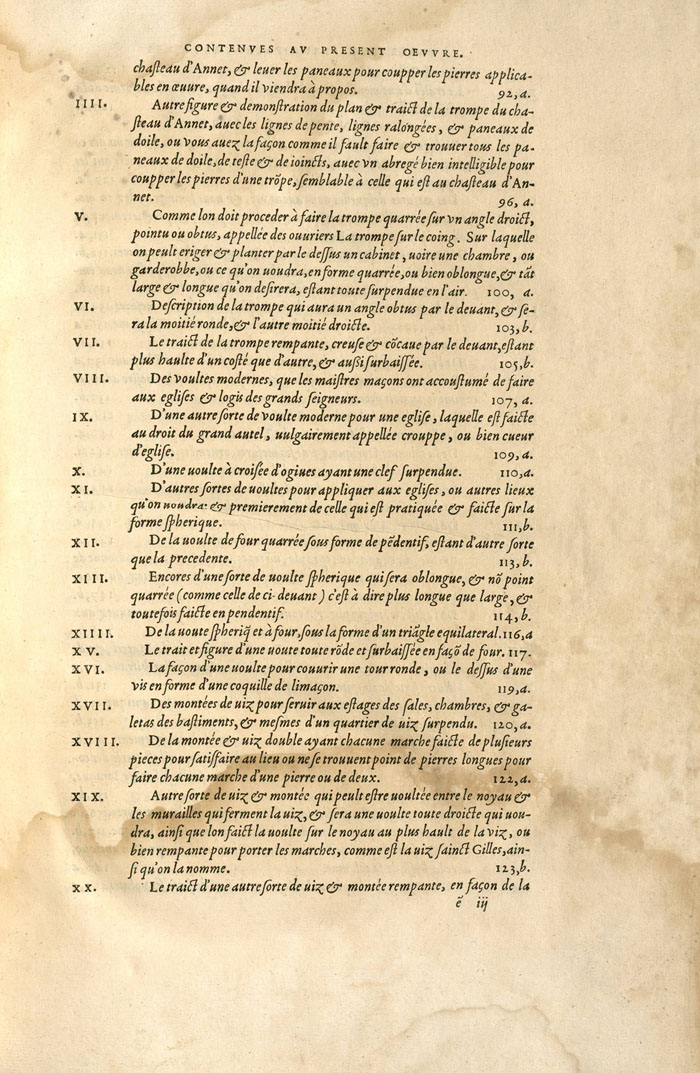 CONTENVES AV PRESENT OEVVRE.
chaſteau d'Annet, & leuer les paneaux pour coupper les pierres applica-
bles en œuure, quand il viendra à propos. 92, a.
IIII. Autre figure & demonſtration du plan & traict de la trompe du cha-
ſteau d'Annet, auec les lignes de pente, lignes ralongées, & paneaux de
doile, ou vous auez la façon comme il fault faire & trouuer tous les pa-
neaux de doile, de teſte & de ioincts, auec vn abregé bien intelligible pour
coupper les pierres d'une trõpe, ſemblable à celle qui est au chaſteau d'An-
net. 96, a.
V. Comme lon doit proceder à faire la trompe quarrée ſur vn angle droict,
pointu ou obtus, appellée des ouuriers La trompe ſur le coing. Sur laquelle
on peult eriger & planter par le deſſus un cabinet, uoire une chambre, ou
garderobbe, ou ce qu'on uoudra, en forme quarrée, ou bien oblongue, & tãt
large & longue qu'on deſirera, eſtant toute ſurpendue en l'air. 100, a.
VI. Deſcription de la trompe qui aura un angle obtus par le deuant, & ſe-
ra la moitié ronde, & l'autre moitié droicte. 103, b.
VII. Le traict de la trompe rampante, creuſe & cõcaue par le deuant, eſtant
plus haulte d'un coſté que d'autre, & außi ſurbaiſſée. 105, b.
VIII. Des voultes modernes, que les maiſtres maçons ont accouſtumé de faire
aux egliſes & logis des grands ſeigneurs. 107, a.
IX. D'une autre ſorte de voulte moderne pour une egliſe, laquelle eſt faicte
au droit du grand autel, uulgairement appellée crouppe, ou bien cueur
d'egliſe. 109, a.
X. D'une uoulte à croiſée d'ogiues ayant une clef ſurpendue. 110, a.
XI. D'autres ſortes de uoultes pour appliquer aux egliſes, ou autres lieux
qu'on uoudra: & premierement de celle qui eſt pratiquée & faicte ſur la
forme ſpherique. 111, b.
XII. De la uoulte de four quarrée ſous forme de pẽdentif, eſtant d'autre ſorte
que la precedente. 113, b.
XIII. Encores d'une ſorte de uoulte ſpherique qui ſera oblongue, & nõ point
quarrée (comme celle de ci-deuant) c'eſt à dire plus longue que large, &
toutefois faicte en pendentif. 114, b.
XIIII. De la uoute ſpheriq̃ et à four, ſous la forme d'un triãgle equilateral. 116, a
XV. Le trait et figure d'une uoute toute rõde et ſurbaiſſée en façõ de four. 117.
XVI. La façon d'une uoulte pour couurir une tour ronde, ou le deſſus d'une
vis en forme d'une coquille de limaçon. 119, a.
XVII. Des montées de uiz pour ſeruir aux eſtages des ſales, chambres, & ga-
letas des baſtiments, & meſmes d'un quartier de uiz ſurpendu. 120, a.
XVIII. De la montée & uiz double ayant chacune marche faicte de pluſieurs
pieces pour ſatiſfaire au lieu ou ne ſe trouuent point de pierres longues pour
faire chacune marche d'une pierre ou de deux. 122, a.
XIX. Autre ſorte de uiz & montée qui peult eſtre uoultée entre le noyau &
les murailles qui ferment la uiz, & ſera une uoulte toute droicte qui uou-
dra, ainſi que lon faict la uoulte ſur le noyau au plus hault de la viz, ou
bien rempante pour porter les marches, comme est la uiz ſainct Gilles, ain-
ſi qu'on la nomme. 123, b.
XX. Le traict d'une autre ſorte de uiz & montée rempante, en façon de la
ẽ iij